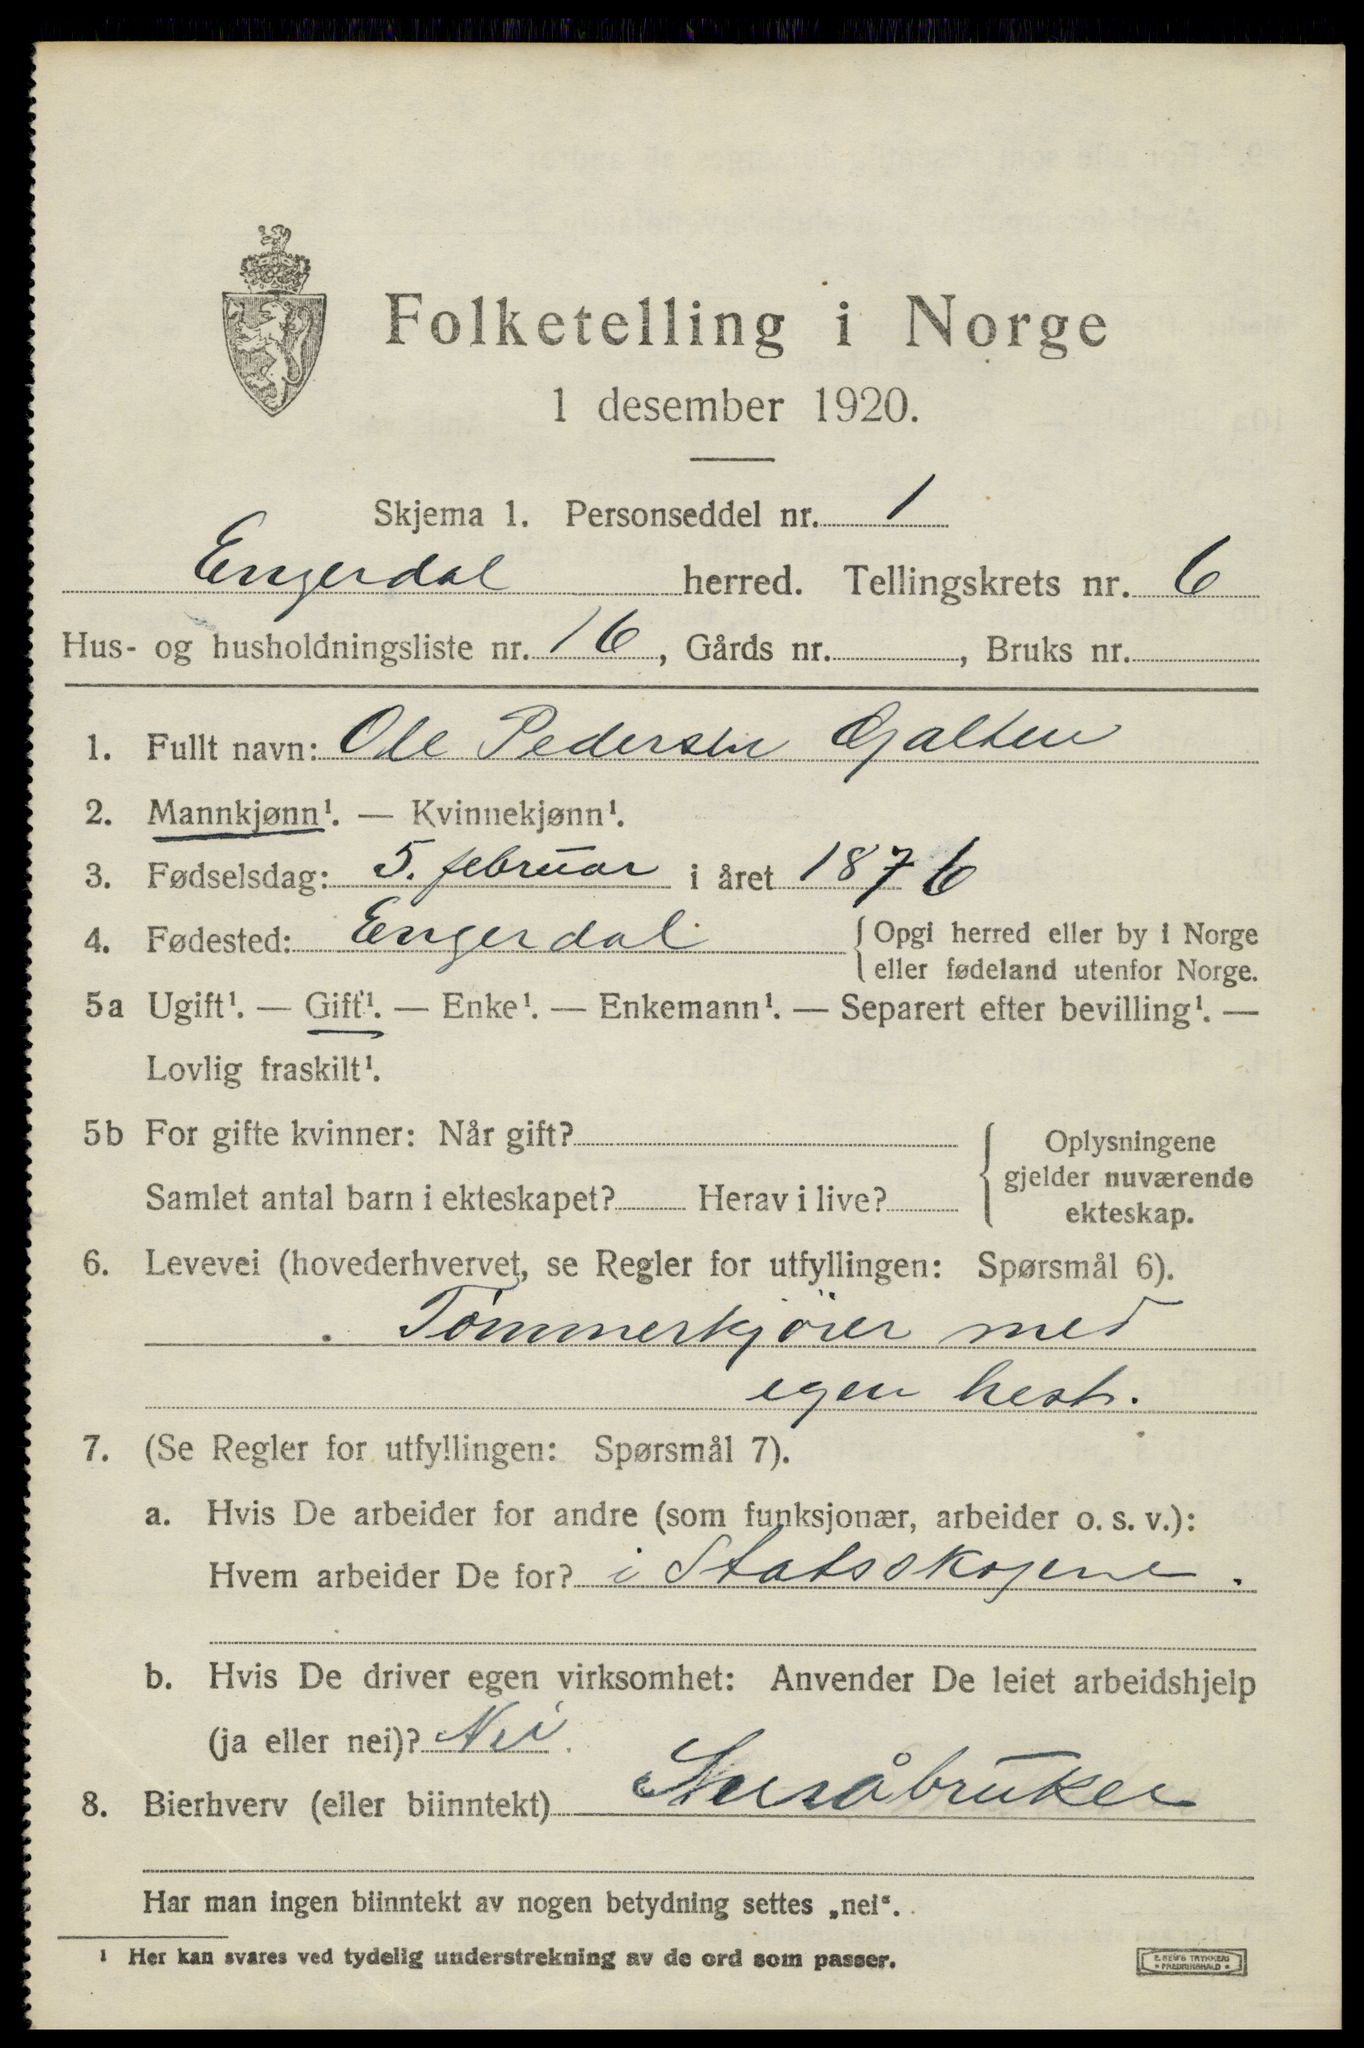 Folketelling i Norge
1 desember 1920.
Skjema 1. Personseddel nr. 1
Engerdal herred. Tellingskrets nr. 6
Hus- og husholdningsliste nr. 16, Gårds nr. , Bruks nr.
1. Fullt navn: Ole Pedersen Galten
2. Mannkjønn¹. — Kvinnekjønn¹.
3. Fødselsdag: 5. februar i året 1876
4. Fødested: Engerdal { Opgi herred eller by i Norge
eller fødeland utenfor Norge.
5a Ugift¹. — Gift¹. — Enke¹. — Enkemann¹. — Separert efter bevilling¹. —
Lovlig fraskilt¹.
5b For gifte kvinner: Når gift?
Samlet antal barn i ekteskapet? Herav i live?
{ Oplysningene
gjelder nuværende
ekteskap.
6. Levevei (hovederhvervet, se Regler for utfyllingen: Spørsmål 6).
Tømmerkjörer med
egen hest.
7. (Se Regler for utfyllingen: Spørsmål 7).
a. Hvis De arbeider for andre (som funksjonær, arbeider o. s. v.):
Hvem arbeider De for? i Statsskogene.
b. Hvis De driver egen virksomhet: Anvender De leiet arbeidshjelp
(ja eller nei)? Nei.
8. Bierhverv (eller biinntekt) Småbruker
Har man ingen biinntekt av nogen betydning settes „nei“.
¹ Her kan svares ved tydelig understrekning av de ord som passer.
TRYKKERI
FREDRIKSHALD